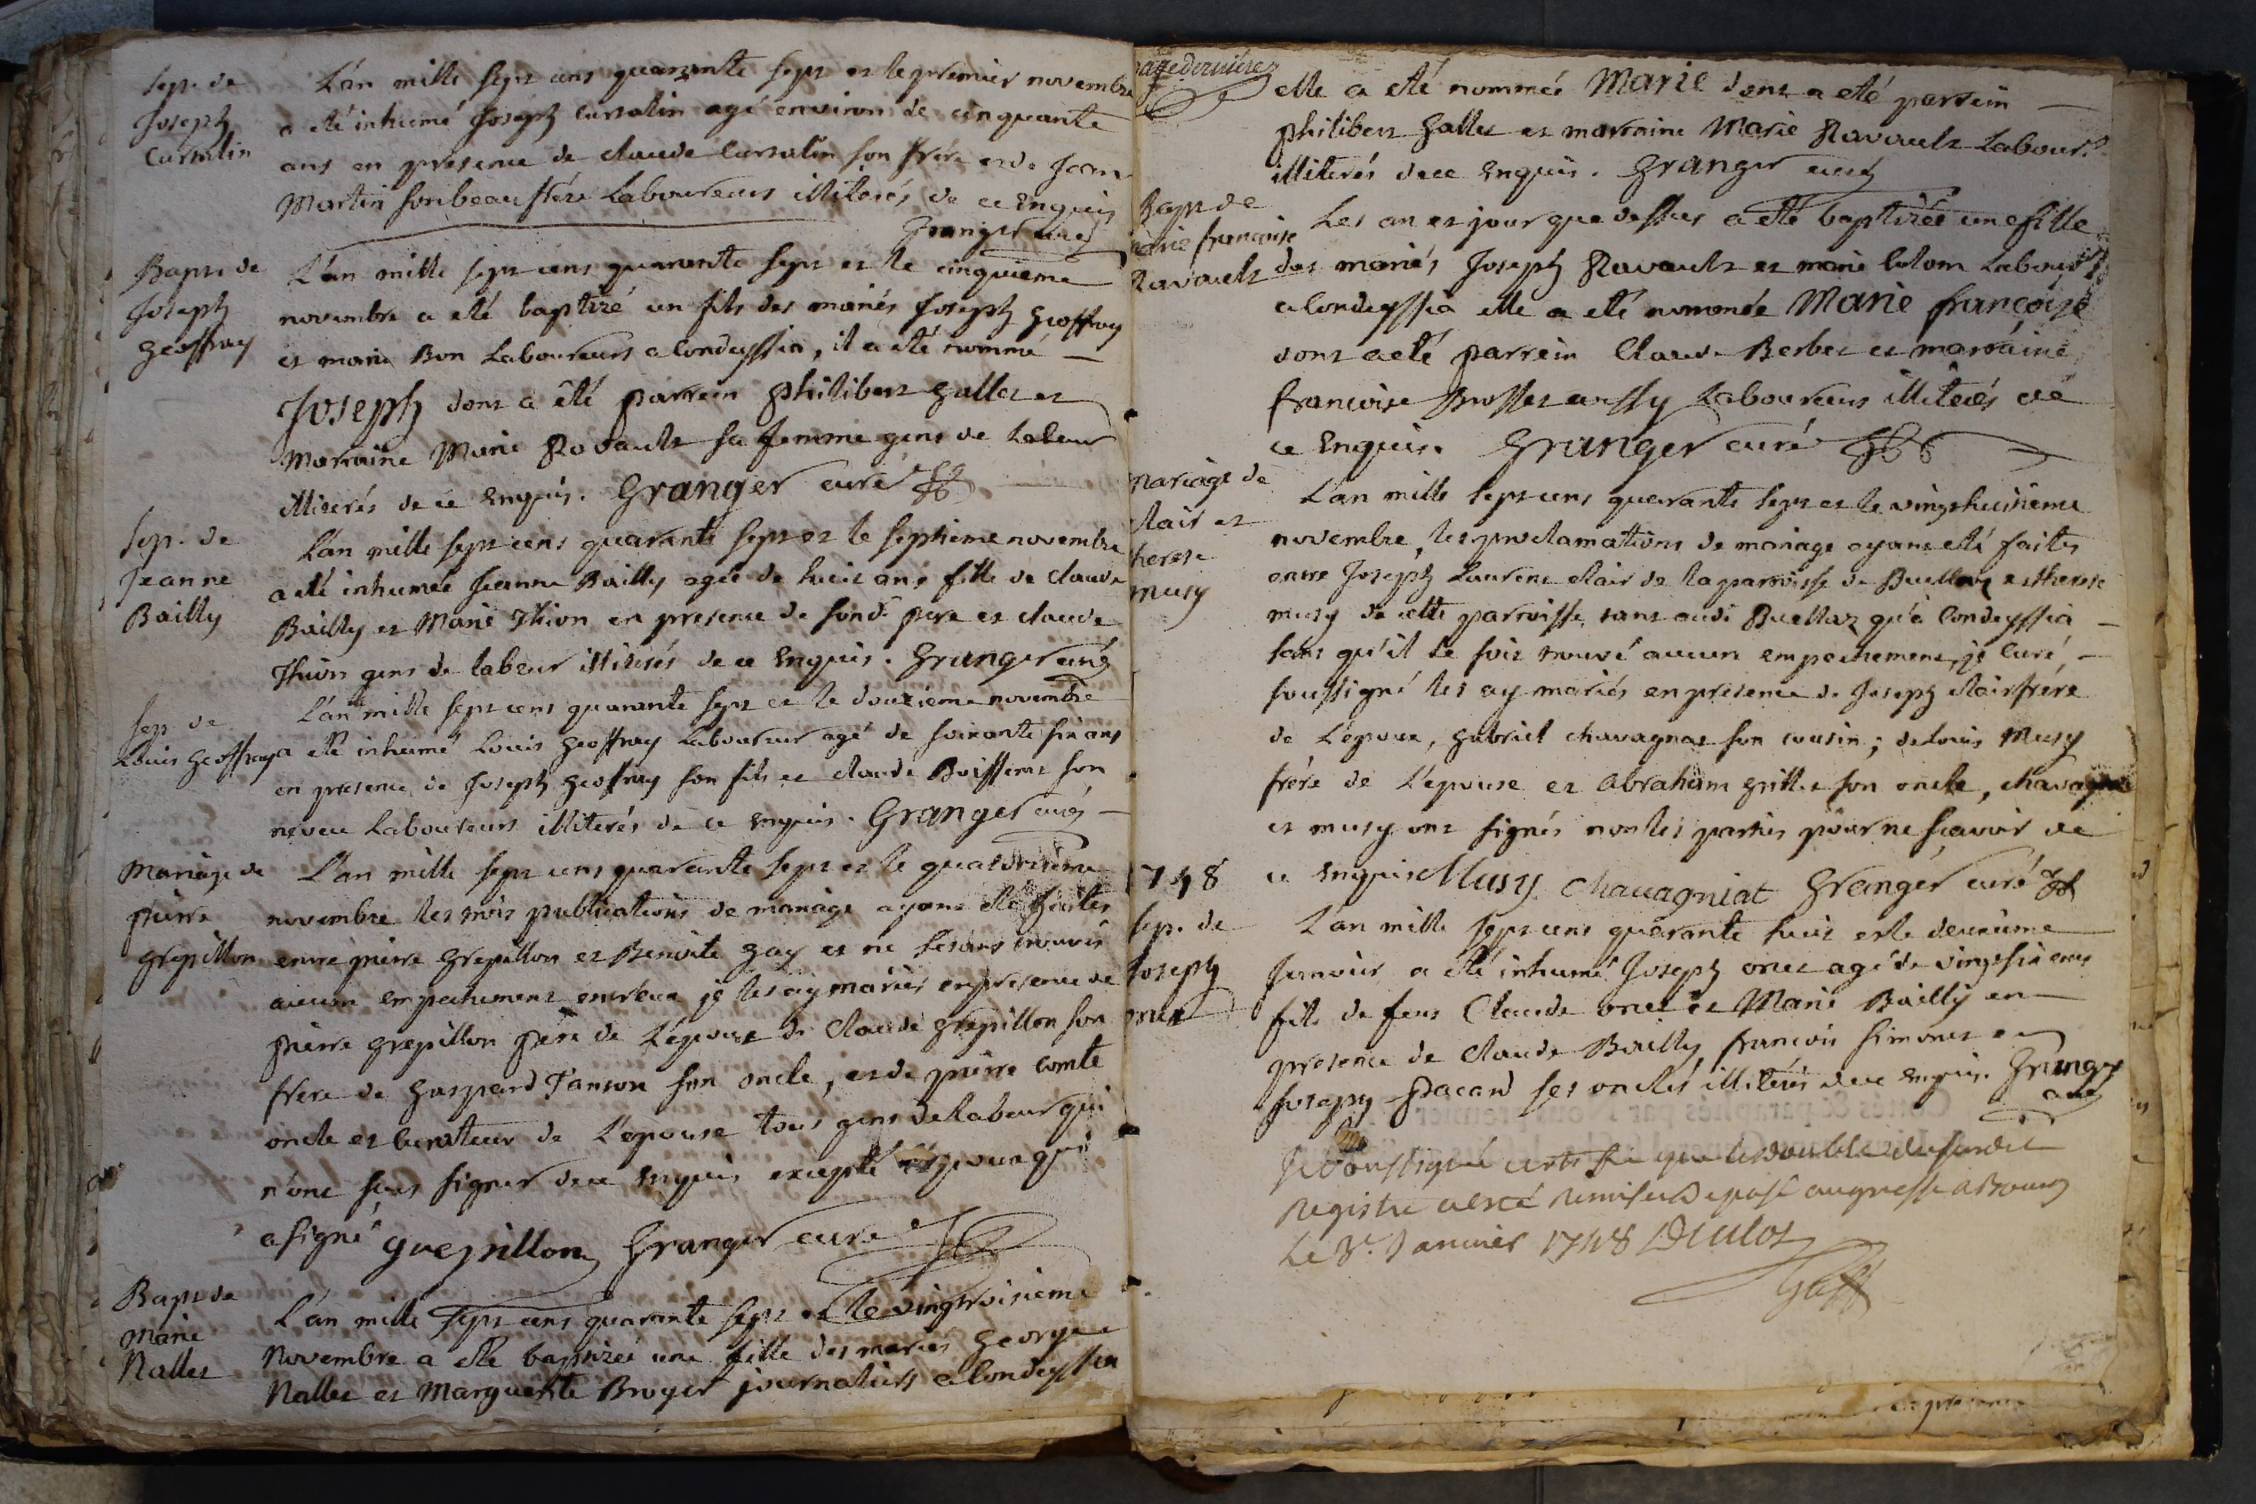 Sep. de
Joseph
Cursalin
L'an mille sept cens quarante sept et le premier novembre
a été inhumé Joseph Cursalin agé environ de cinquante
ans en presence de claude Cursalin son frère et de Jean
Martin son beau frére Laboureurs illiterés de ce Enquis
Granger curé
Bapt. de
Joseph
Geoffray
L'an mille sept cens quarante sept et le cinquieme
novembre a eté baptizé un fils des mariés Joseph Geoffray
et marie Bon Laboureurs a Condeyssia, il a eté nommé
Joseph dont a été parrein philibert Gallet et
Marraine Marie Ravault sa femme gens de Labeur
illiterés de ce Enquis. Granger curé
Sep. de
Jeanne
Bailly
L'an mille sept cens quarante sept et le septieme novembre
a eté inhumée Jeanne Bailly agée de huit ans fille de claude
Bailly et Marie Thion en presence de sond. pere et claude
Thion gens de labeur illiterés de ce Enquis. Granger curé
Sep. de
Louis Geoffray
L'an mille sept cens quarante sept et le douzieme novembre
a eté inhumé Louis Geoffray Laboureur agé de soixante six ans
en presence de Joseph Geoffray son fils et claude Boissent son
neveu Laboureurs illiterés de ce Enquis. Granger curé
Mariage de
pierre
Grepillon
L'an mille sept cens quarante sept et le quatorzieme
novembre les trois publications de mariage ayant eté faites
entre pierre Grepillon et Benoite Gay et ne s'etant trouvé
aucun empechement entr'eux je les ay mariés en presence de
pierre Grepillon pere de L'epoux de Claude Grepillon son
frere de Gaspard Janson son oncle, et de pierre Comte
oncle et Curateur de L'epouse tous gens de labeur qui
n'ont sçus signer de ce Enquis excepté l'epoux qui
a signé Grepillon Granger curé
Bapt. de
Marie
Nallet
L'an mille sept cens quarante sept et le vingtroisieme
Novembre a eté baptizée une fille des mariés George
Nallet et Marguerite Broyer journaliers a Condeyssia
page derniere
elle a eté nommée Marie dont a eté parrein
philibert Gallet et marraine Marie Ravault Labour.
illiterés de ce Enquis. Granger curé
Bapt de
marie francoise
Ravault
Les an et jour que dessus a eté baptizée une fille
des mariés Joseph Ravault et marie Colom Labour.
a Condeyssia elle a eté nommée Marie françoise
dont a eté parrein Claude Berbet et marraine
francoise Brosset aussy Laboureurs illiterés de
ce Enquis. Granger curé
Mariage de
Clair et
therese
musy
L'an mille sept cens quarante sept et le vingthuitieme
novembre, les proclamations de mariage ayant eté faites
entre Joseph Laurent clair de la parroisse de Buellaz et therese
musy de cette parroisse, tant audi Buellaz qu'a Condeyssia
sans qu'il se soit trouvé aucun empechement, je Curé,
soussigné les ay mariés en presence de Joseph clair frere
de L'epoux, gabriel chavagnat son cousin; de Louis Musy
frére de L'epouse et abraham grillet son oncle, chavagnat
et musy ont signés non les parties pour ne sçavoir de
ce Enquis Musy Chauagniat Granger curé
1748
Sep. de
Joseph
onet
L'an mille sept cens quarante huit et le deuxieme
Janvier a eté inhumé Joseph onet agé de vingt six ans
fils de feus Claude onet et Marie Bailly en
presence de Claude Bailly, francois Simonet et
Joseph Pacard ses oncles illiterés de ce Enquis. Granger
curé
Je soussigné certiffie que le double du susdit
Registre a esté Remis et Deposé au greffe a Bourg
Le 3e. Janvier 1748
Greff